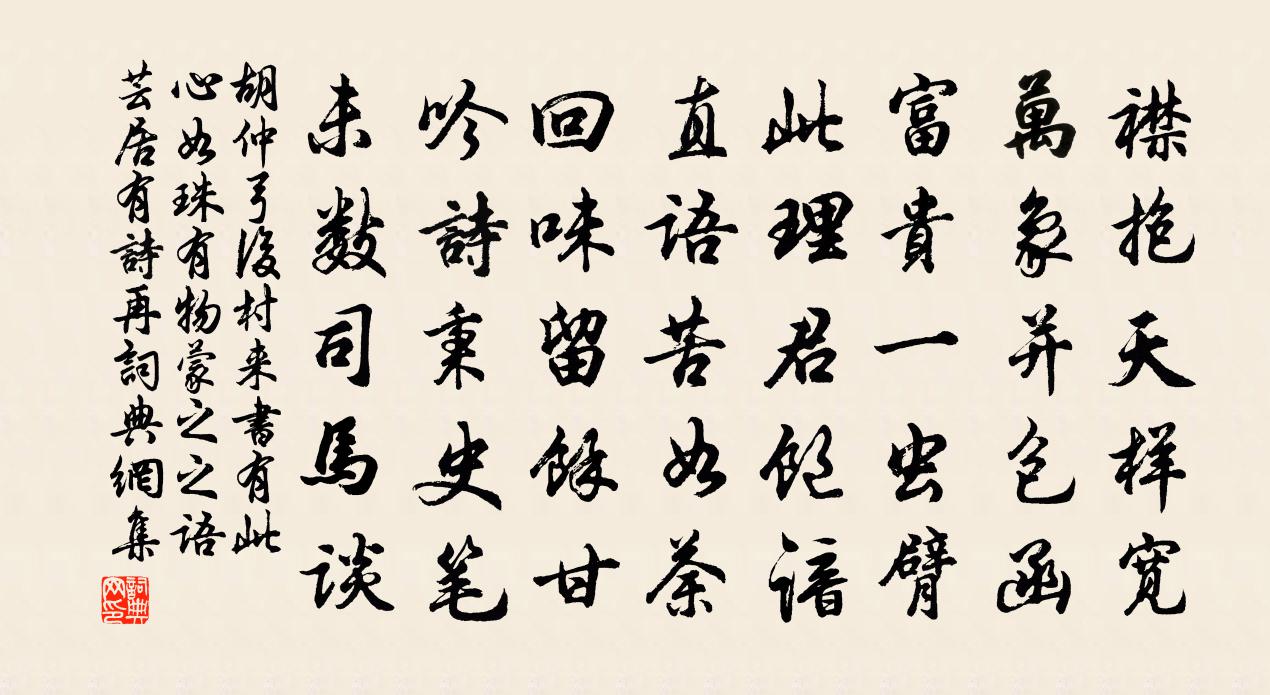 襟抱天样宽
萬象并包函
富貴一虫臂
此理君飽諳
直语苦如荼
回味留餘甘
吟詩秉史笔
未数司馬谈
胡仲弓後村来書有此
心如珠有物蒙之之语
芸居有詩再詞典網集